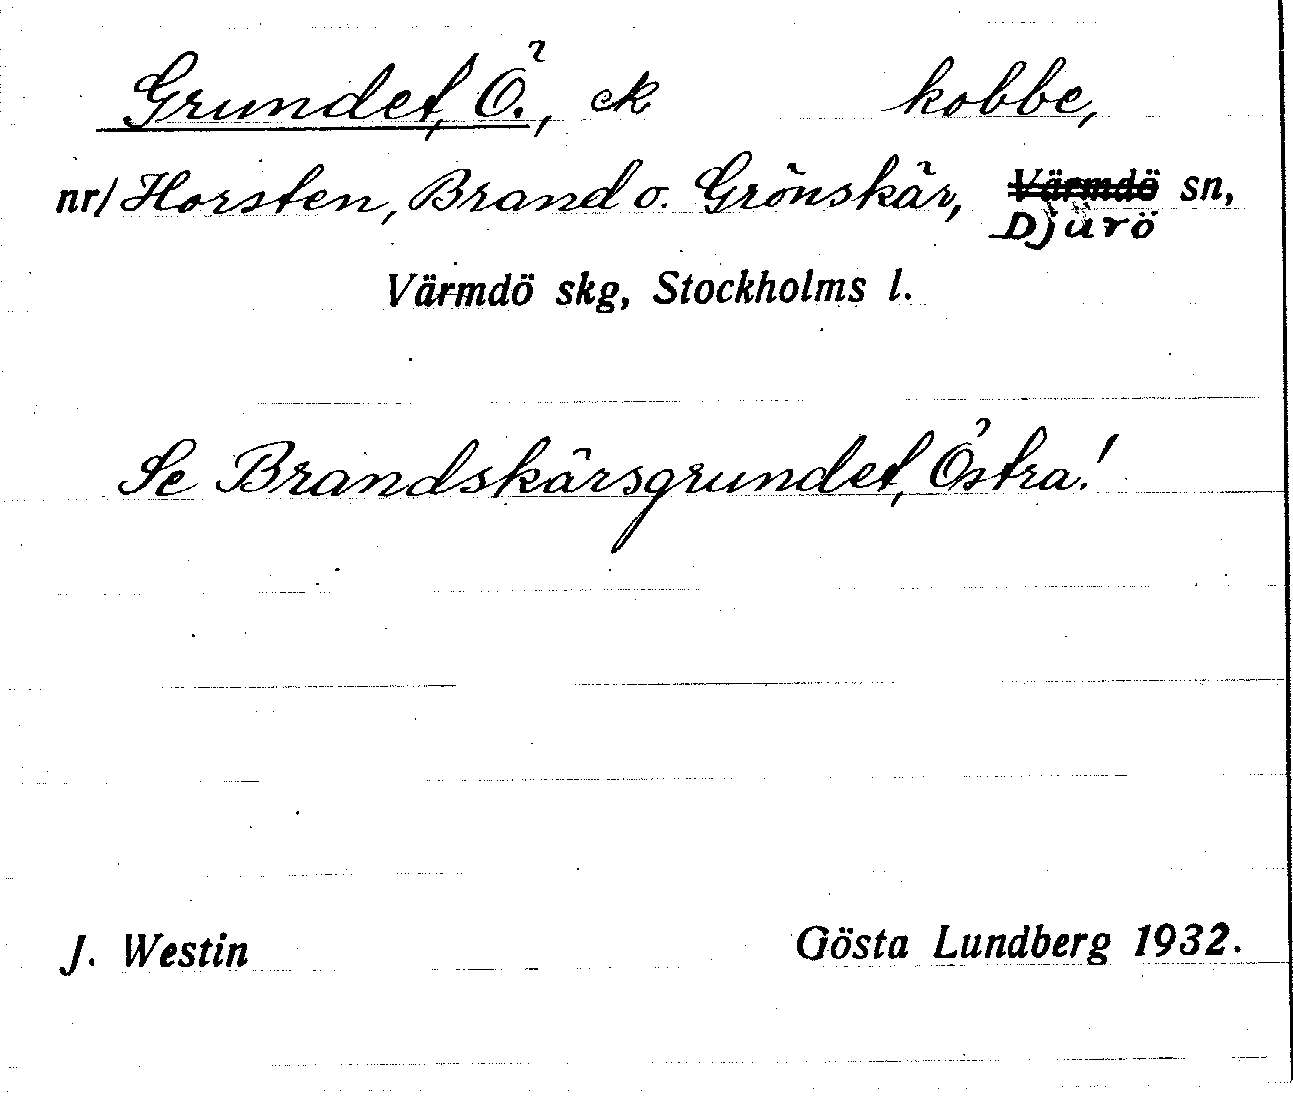 Grundet, Ö., ek kobbe,
nr/ Horsten, Brand o. Grönskär, Värmdö sn,
Djurö
Värmdö skg, Stockholms l.
Se Brandskärsgrundet, Östra!
J. Westin Gösta Lundberg 1932.